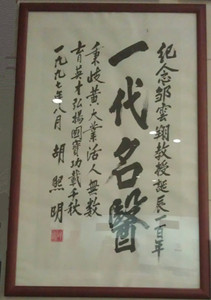 纪念邹雲翔教授誕辰一百年
一代名醫
秉岐黄大業活人無数
育英才弘揚國寳功載千秋
一九九七年八月 胡熙明